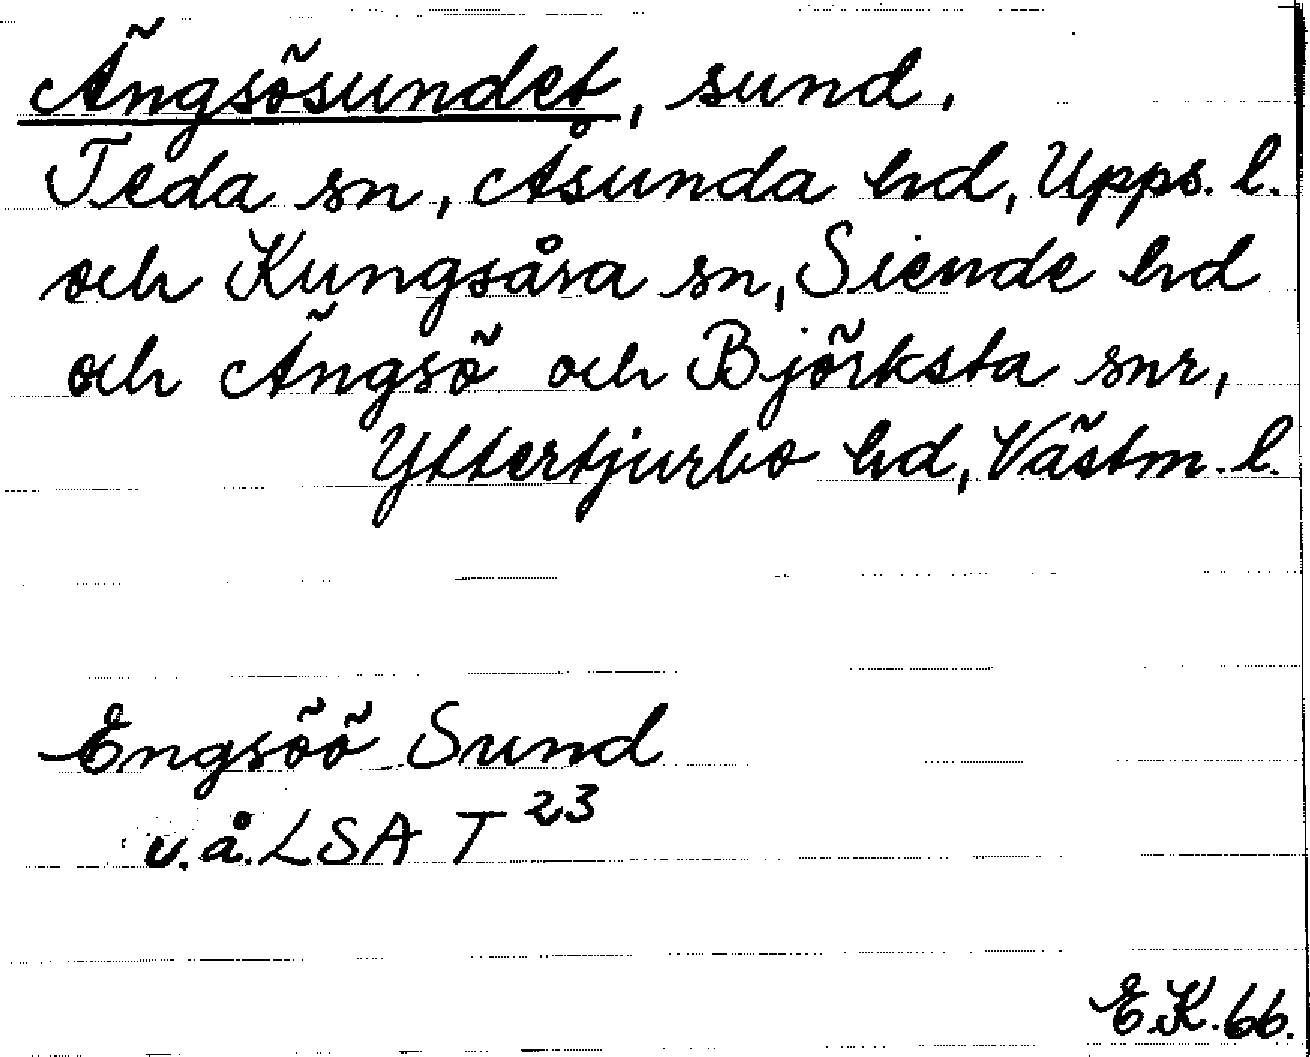 Ängsösundet, sund.
Teda sn, Åsunda hd, Upps. l.
och Kungsåra sn, Siende hd
och Ängsö och Björksta snr,
Yttertjurbo hd, Västm. l.
Engsöö Sund
u.å. LSA T 23
E.K. 66.